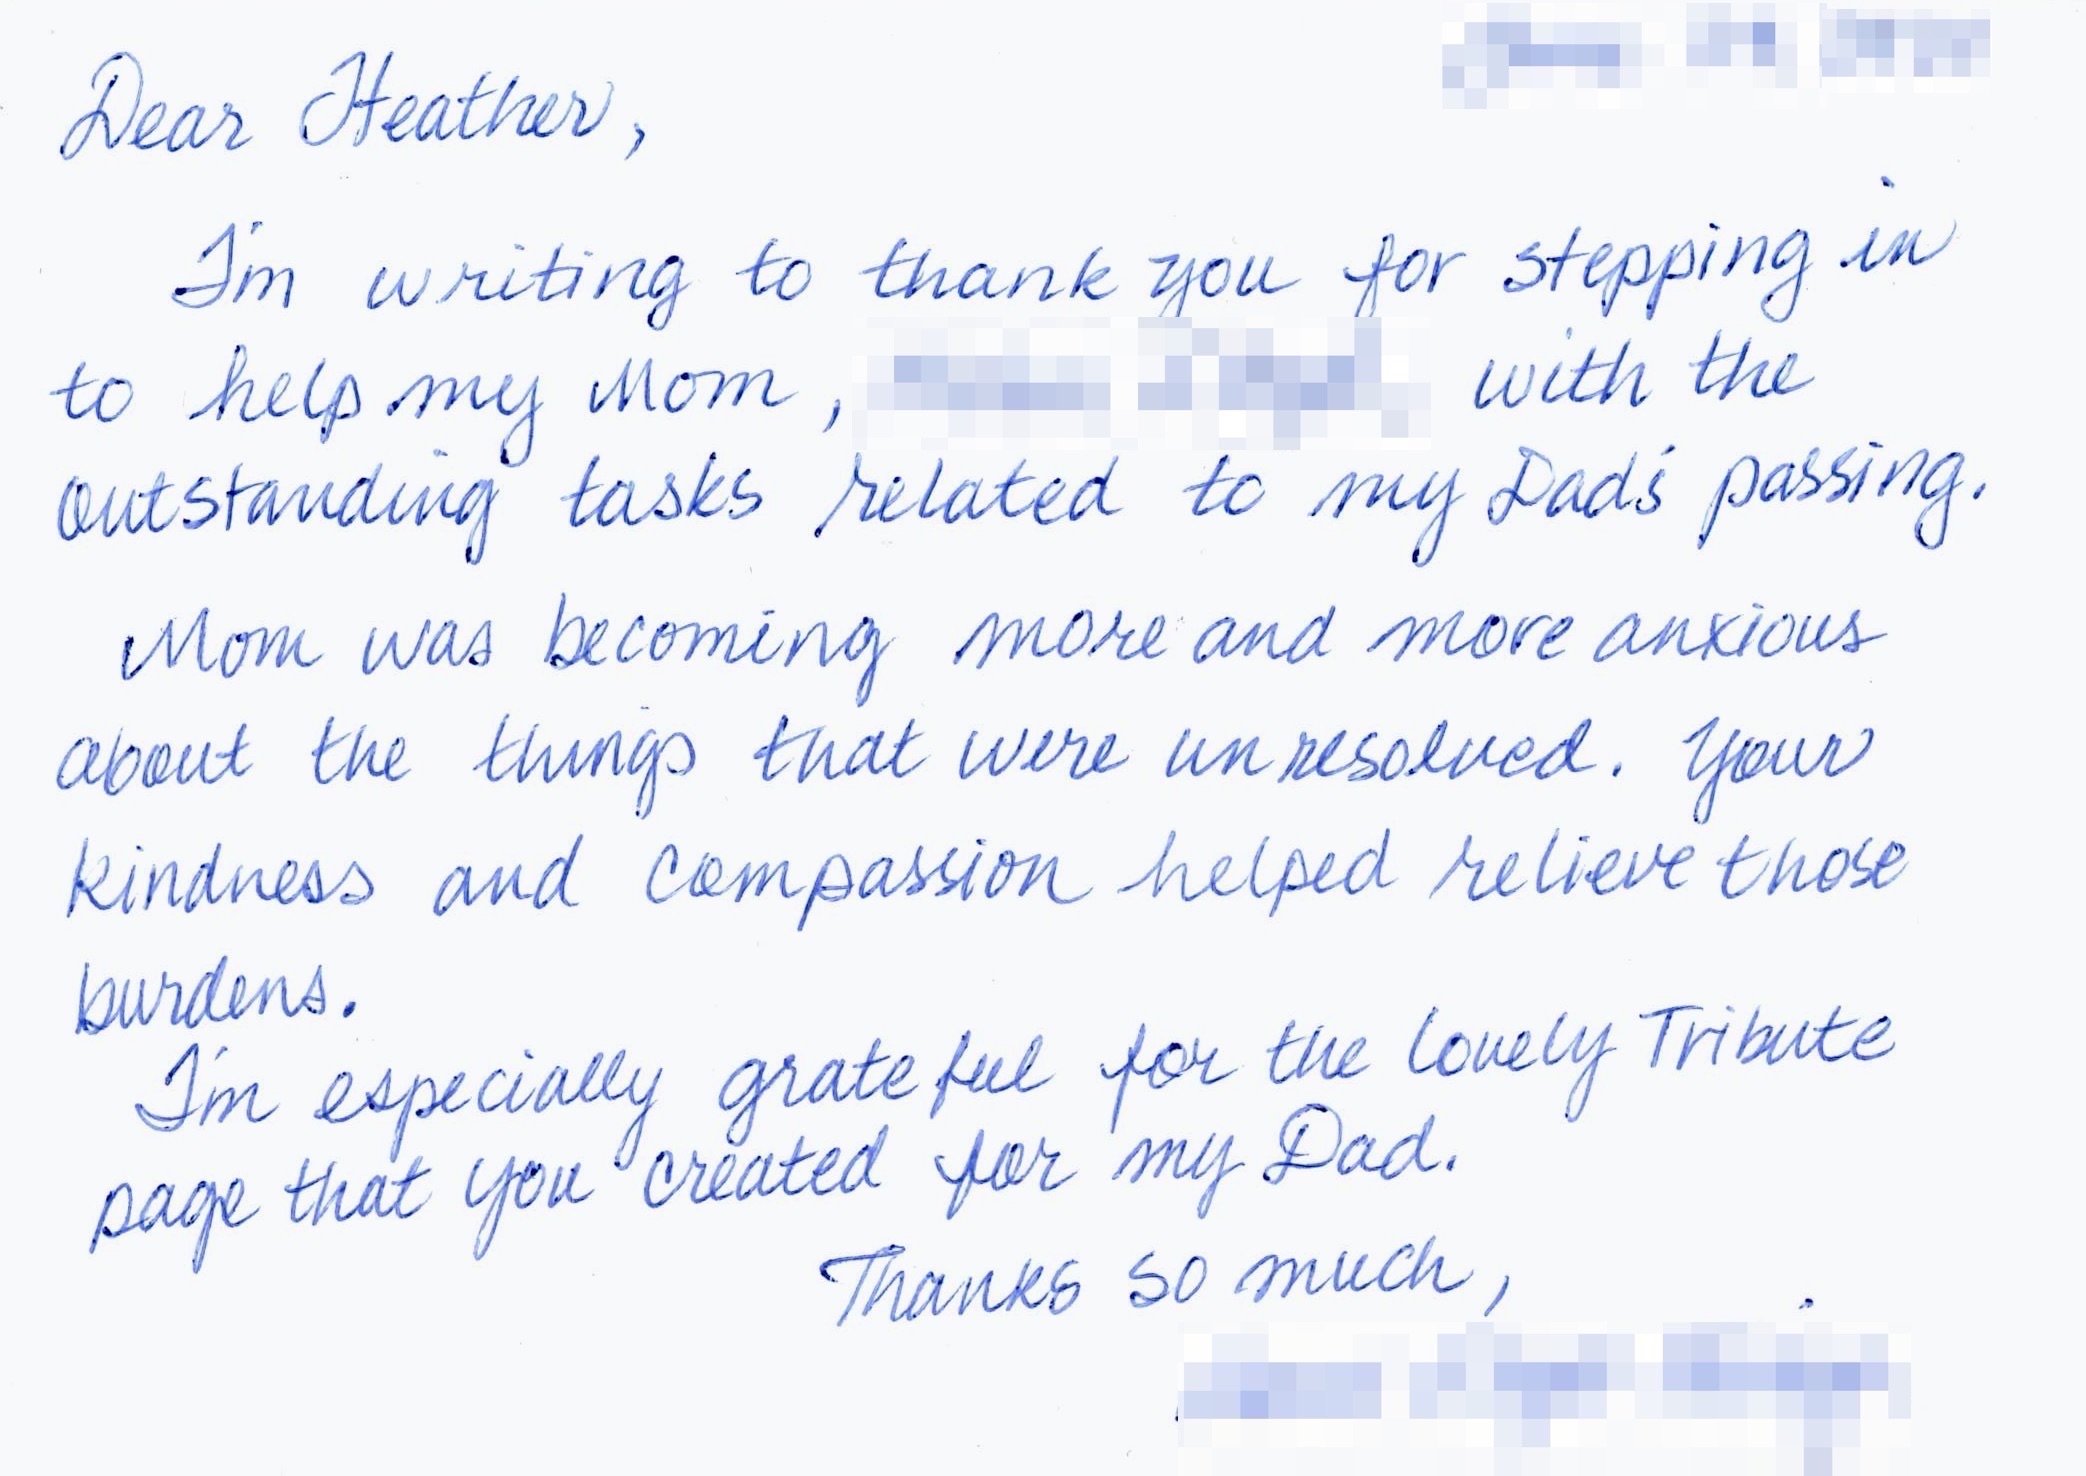 Dear Heather,
I'm writing to thank you for stepping in
to help my Mom, with the
outstanding tasks related to my Dad's passing.
Mom was becoming more and more anxious
about the things that were unresolved. Your
kindness and compassion helped relieve those
burdens.
I'm especially grateful for the lovely Tribute
page that you created for my Dad.
Thanks so much,